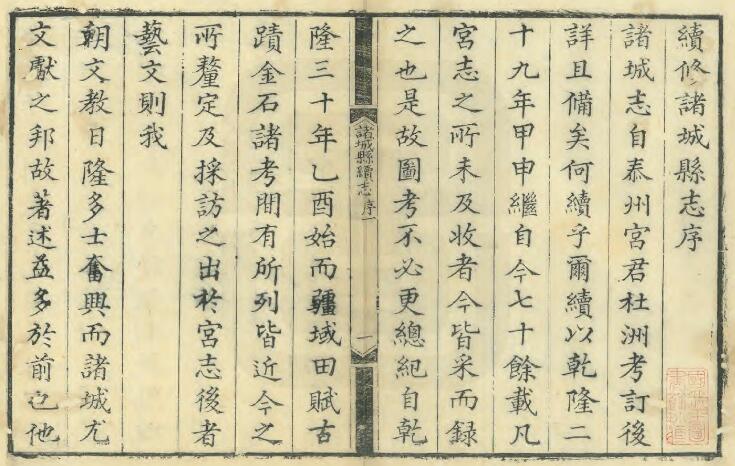 續修諸城縣志序
諸城志自泰州宮君杜洲考訂後
詳且備矣何續乎爾續以乾隆二
十九年甲申繼自今七十餘載凡
宮志之所未及收者今皆采而錄
之也是故圖考不必更總紀自乾
諸城縣續志 序一
一
隆三十年乙酉始而疆域田賦古
蹟金石諸考間有所列皆近今之
所釐定及採訪之出於宮志後者
藝文則我
朝文教日隆多士奮興而諸城尤
文獻之邦故著述益多於前已他